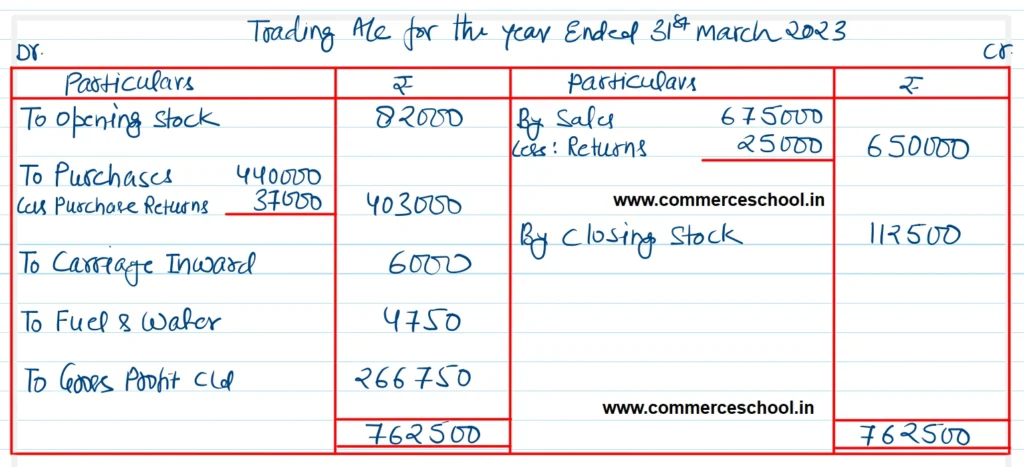 Trading A/c for the year Ended 31st march 2023
Dr. Cr.
Particulars ₹ Particulars ₹
To Opening Stock 82000 By Sales 675000
Less: Returns 25000 650000
To Purchases 440000
Less Purchase Returns 37000 403000
www.commerceschool.in
By Closing Stock 112500
To Carriage Inward 6000
To Fuel & Water 4750
To Gross Profit C/d 266750
www.commerceschool.in
762500 762500